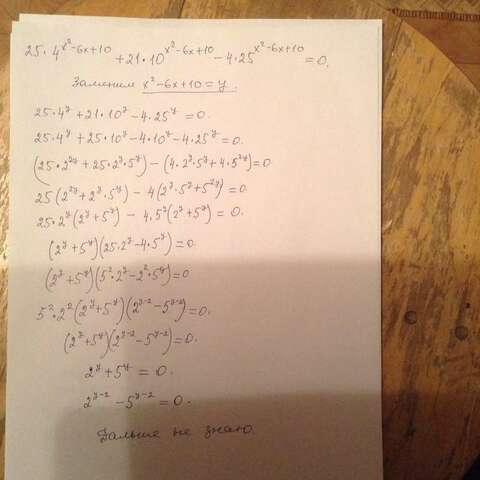 25·4^(x²-6x+10) + 21·10^(x²-6x+10) - 4·25^(x²-6x+10) = 0.
Заменим x²-6x+10 = y.
25·4^y + 21·10^y - 4·25^y = 0.
25·4^y + 25·10^y - 4·10^y - 4·25^y = 0.
(25·2^(2y) + 25·2^y·5^y) - (4·2^y·5^y + 4·5^(2y)) = 0
25(2^(2y) + 2^y·5^y) - 4(2^y·5^y + 5^(2y)) = 0
25·2^y(2^y + 5^y) - 4·5^y(2^y + 5^y) = 0.
(2^y + 5^y)(25·2^y - 4·5^y) = 0.
(2^y + 5^y)(5²·2^y - 2²·5^y) = 0
5²·2²(2^y + 5^y)(2^(y-2) - 5^(y-2)) = 0.
(2^y + 5^y)(2^(y-2) - 5^(y-2)) = 0.
2^y + 5^y = 0.
2^(y-2) - 5^(y-2) = 0.
Дальше не знаю.